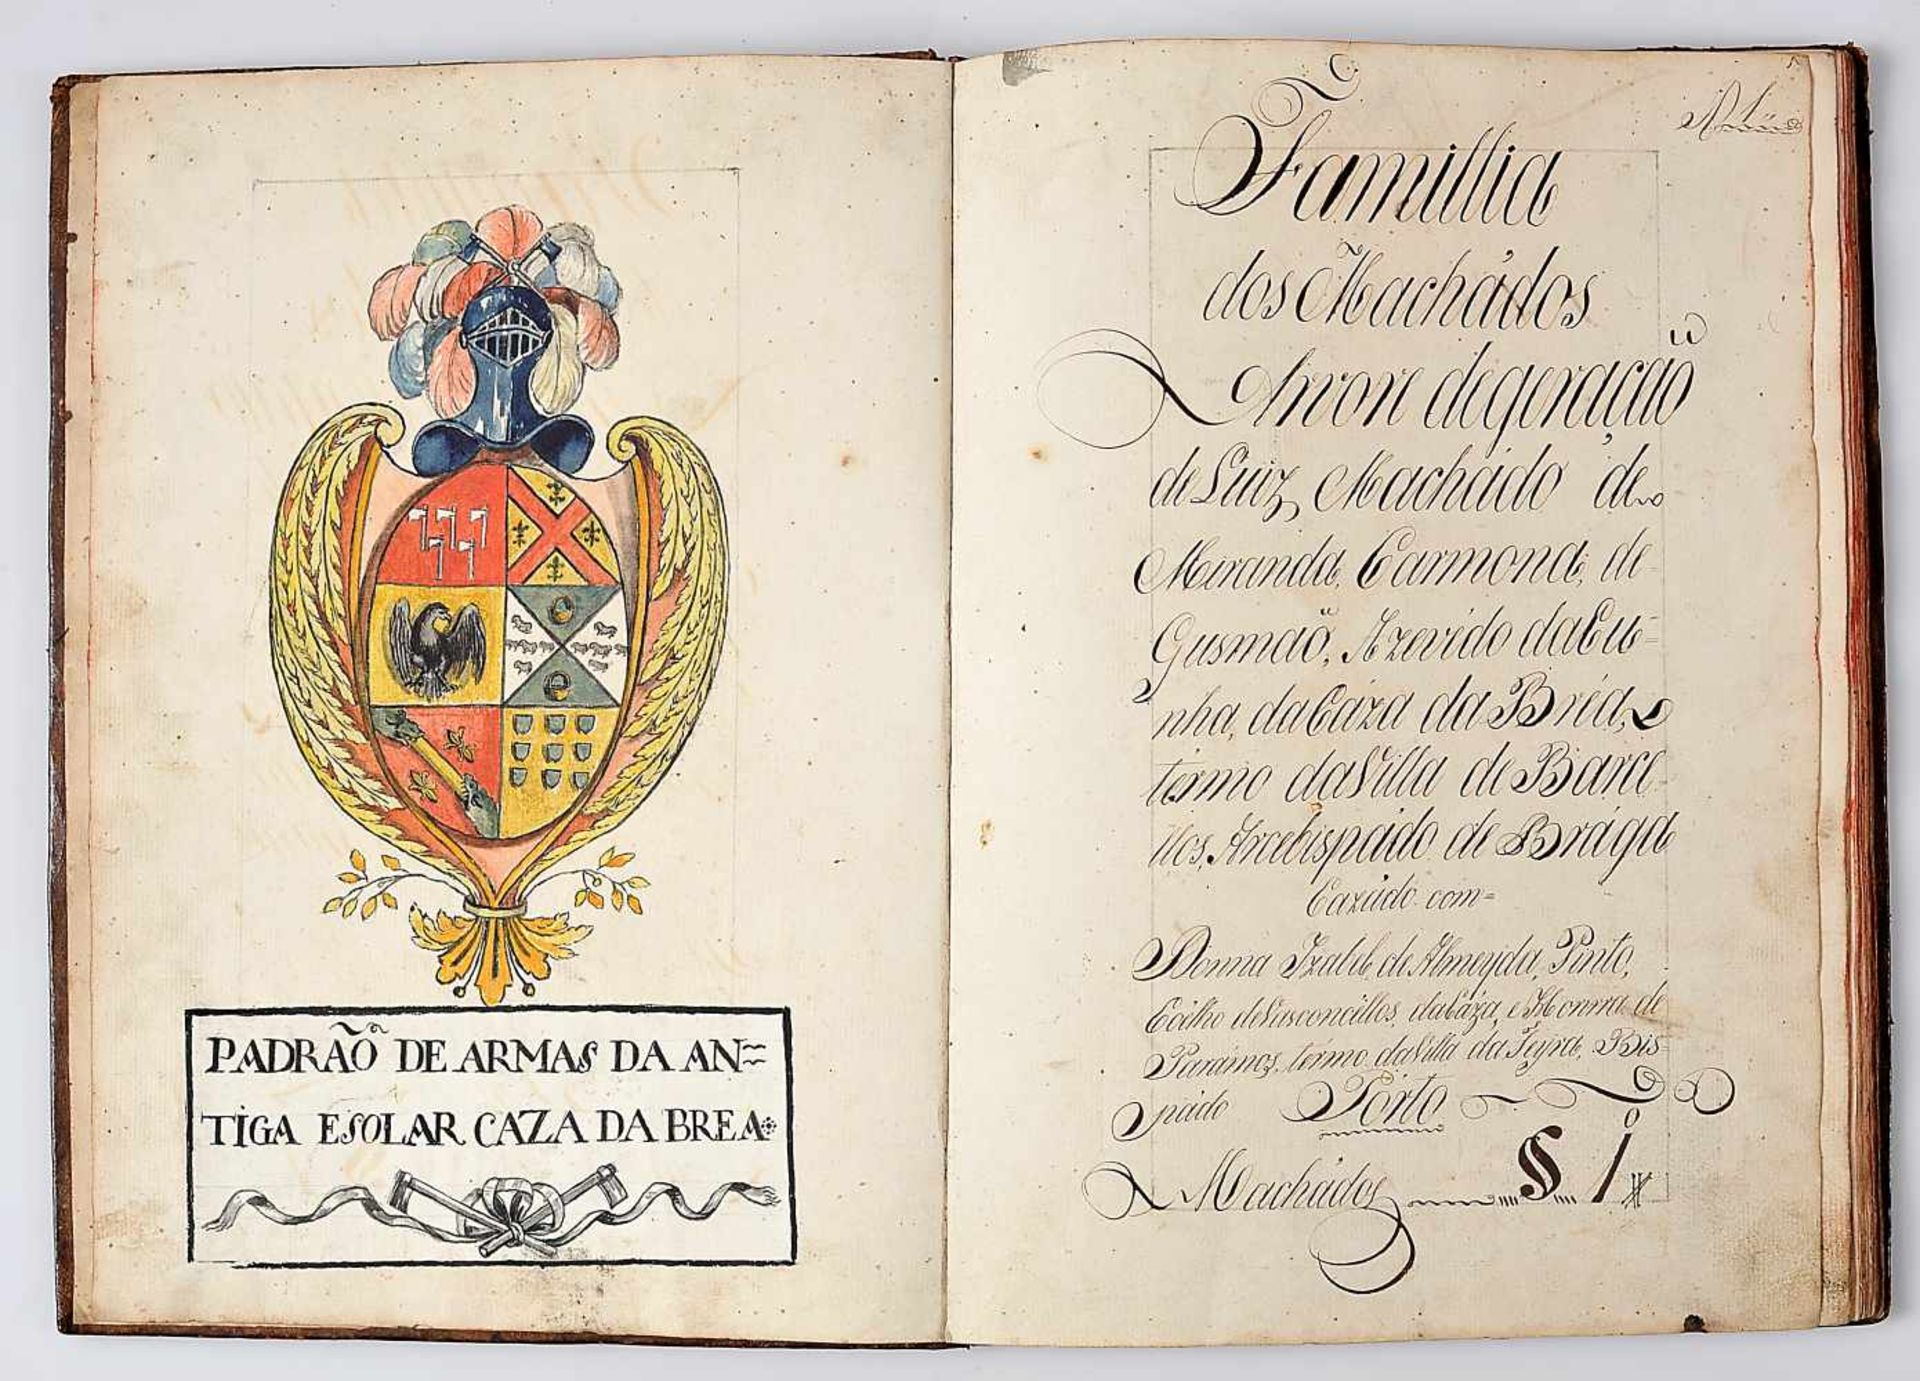 PADRÃO DE ARMAS DA AN=
TIGA E SOLAR CAZA DA BREA
Famillia
dos Machádos
Arvore de geração
de Luiz Machádo de
Miranda, Carmona, de
Gusmaõ, Azevedo da Cu=
nha, da Cáza da Bréa,
termo da Villa de Barce-
llos, Arcebispádo de Brága
Cazádo com=
Donna Izabel de Almeyda, Pinto,
Coelho de Vasconcellos, da Cáza, e Honrra de
Parámos, termo da Villa da Feyra, Bis-
pádo Pórto
Machádos §. 1º